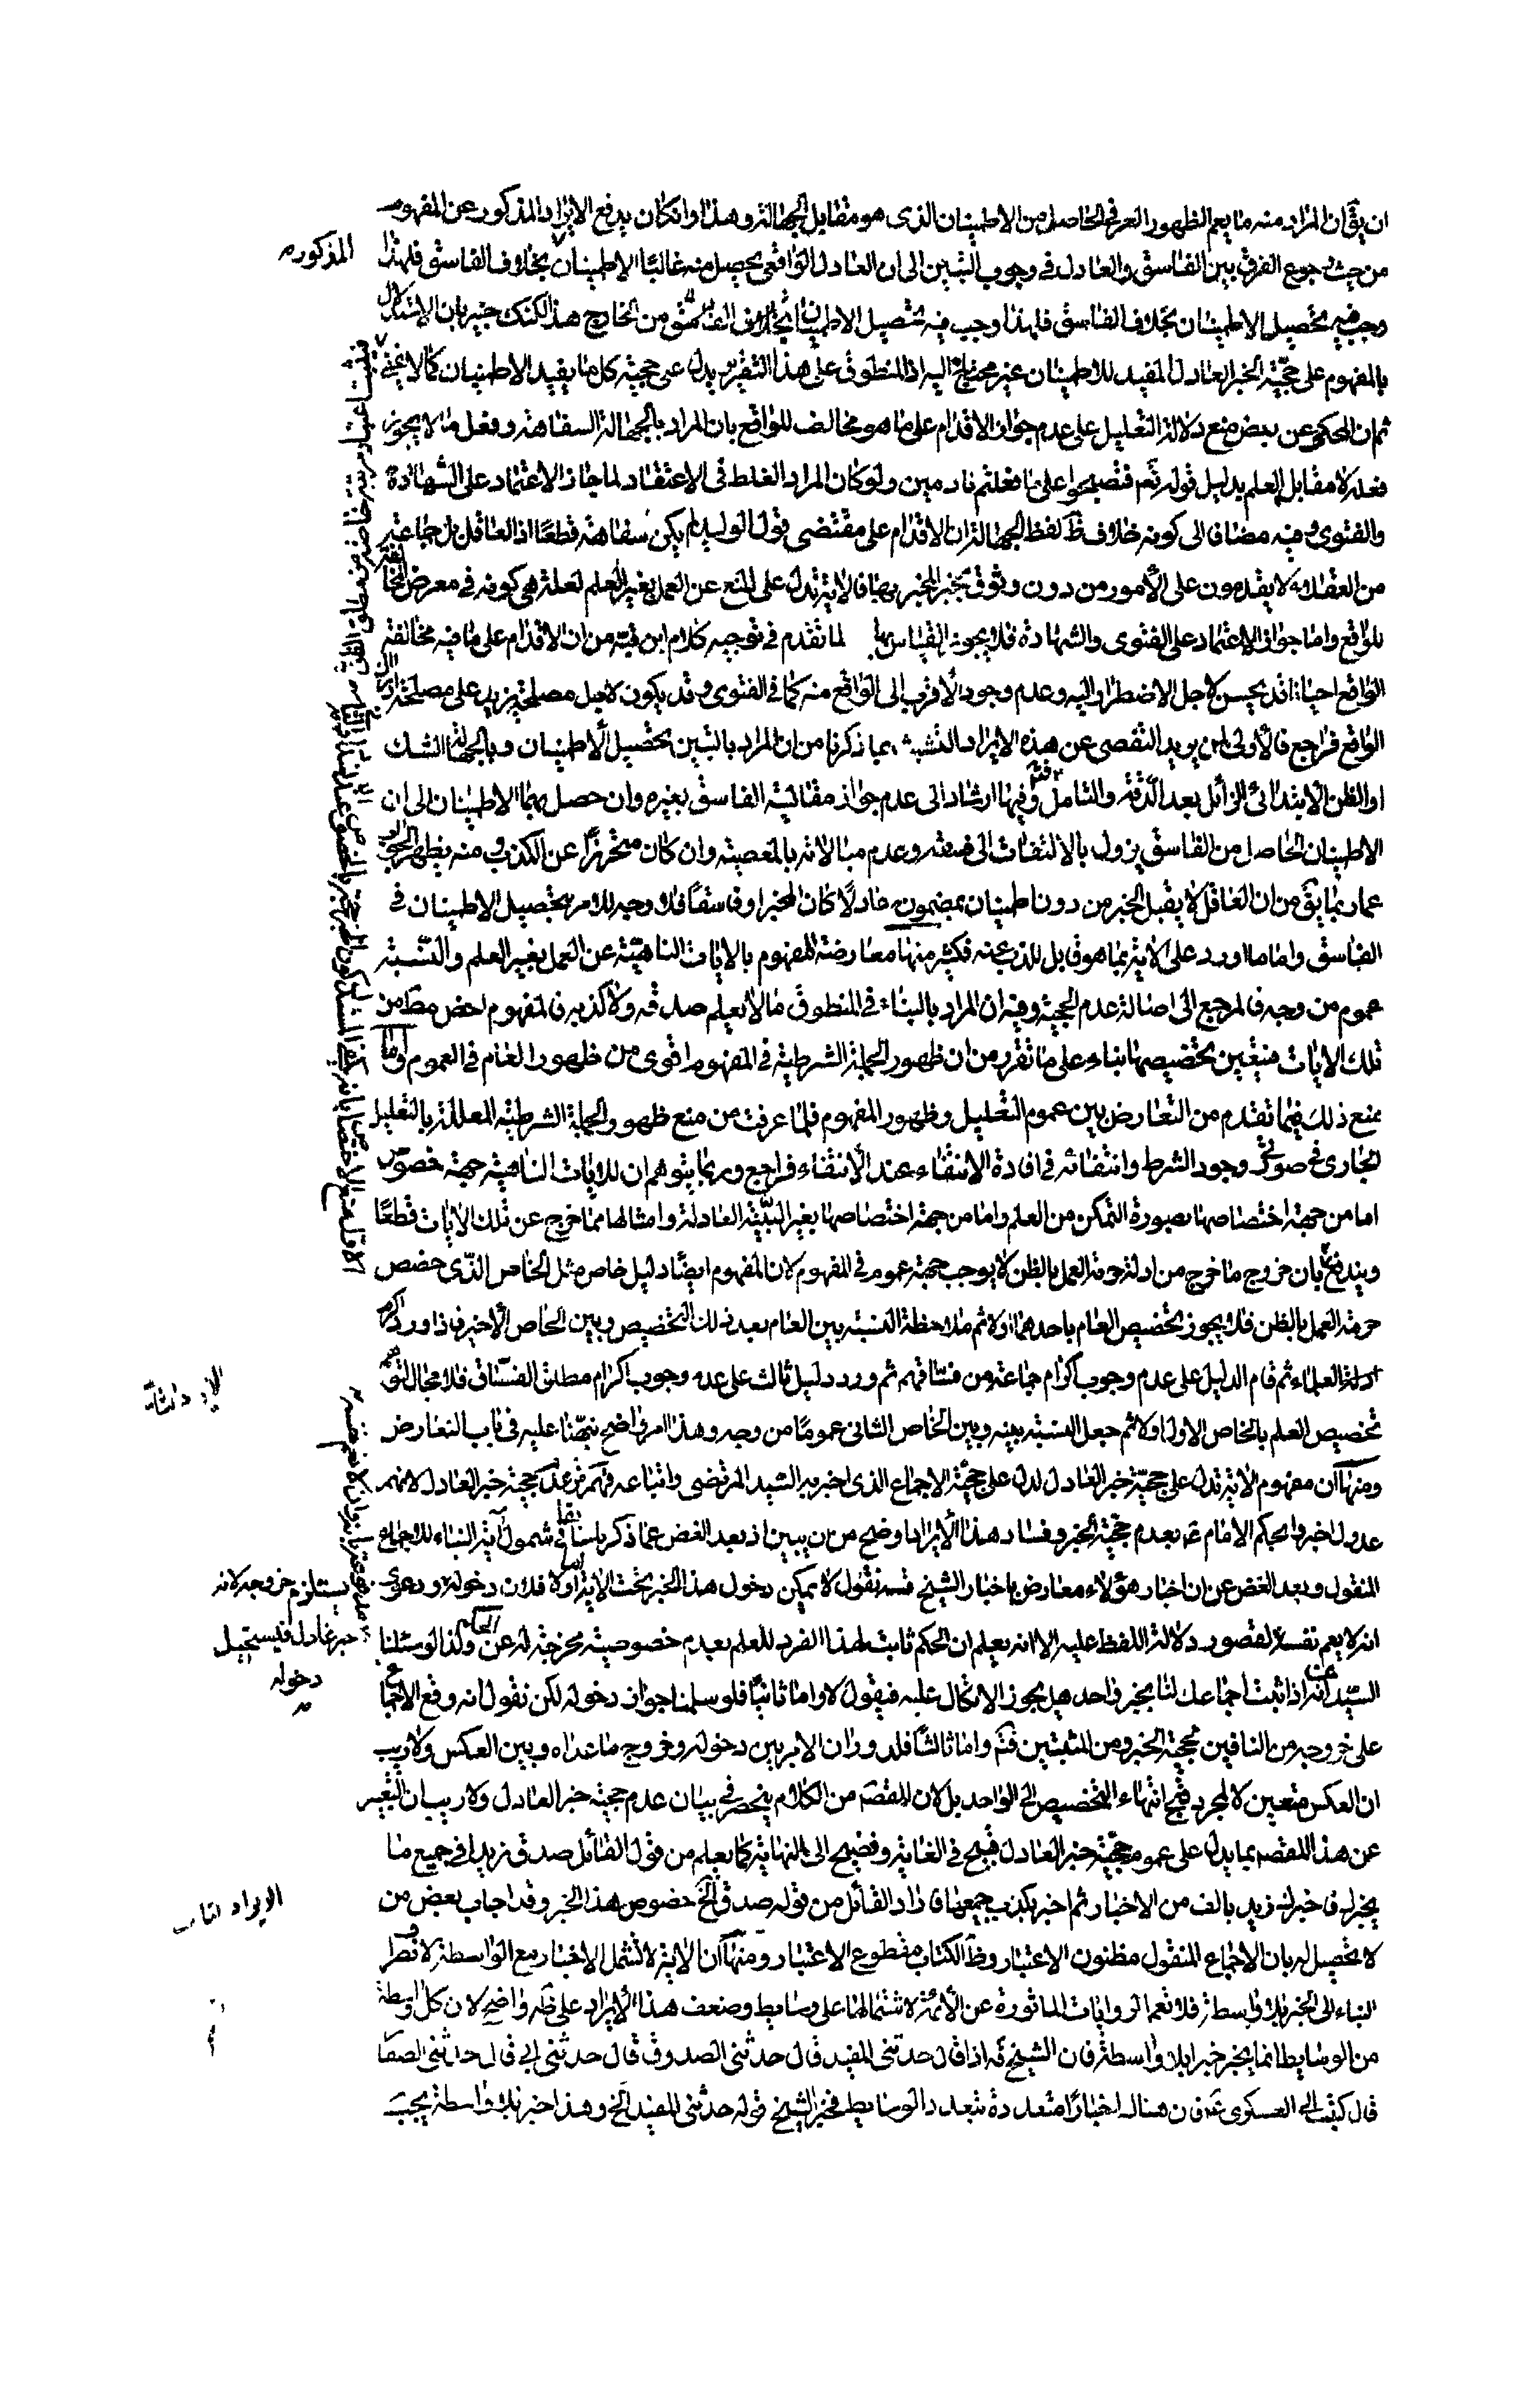 ان يقال ان المراد منه ما يعم الظهور العرفى الحاصل من الاطمينان الذى هو مقابل الجهالة وهذا وان كان يدفع الايراد المذكور عن المفهوم
من حيث رجوع الفرق بين الفاسق والعادل فى وجوب التبين الى ان العادل الواقعى يحصل منه غالبًا الاطمينان بخلاف الفاسق فلهذا
وجب فيه تحصيل الاطمينان بخلاف الفاسق فلهذا وجب فيه تحصيل الاطمينان من الخارج هذا لكنك خبير بان الاستدلال
بالمفهوم على حجّية الخبر العادل المفيد للاطمينان غير محتاج اليه اذ المنطوق على هذا التقرير يدل على حجية كل ما يفيد الاطمينان كما لا يخفى
ثم ان المحكى عن بعض منع دلالة التعليل على عدم جواز الاقدام على ما هو مخالف للواقع بان المراد بالجهالة السفاهة وفعل ما لا يجوز
فعله لا مقابل العلم بدليل قوله تعم فتصبحوا على ما فعلتم نادمين ولو كان المراد الغلط فى الاعتقاد لما جاز الاعتماد على الشهادة
والفتوى وفيه مضافا الى كونه خلاف ظ لفظ الجهالة ان الاقدام على مقتضى قول الوليد لم يكن سفاهة قطعًا اذ العاقل بل جماعة
من العقلاء لا يقدمون على الأمور من دون وثوق بخبر المخبر بها فالآية تدل على المنع عن العمل بغير العلم لعلة هى كونه فى معرض المخالفة
للواقع واما جواز الاعتماد على الفتوى والشهادة فلا يجوز القياس بها لما تقدم فى توجيه كلام ابن قبة من ان الاقدام على ما فيه مخالفة
الواقع احيانا قد يحسن لاجل الاضطرار اليه وعدم وجود الأقرب الى الواقع منه كما فى الفتوى وقد يكون لاجل مصلحة يزيد على مصلحة ادراك
الواقع فراجع فالأولى لمن يريد التفصى عن هذه الايراد التشبث بما ذكرنا من ان المراد بالتبين تحصيل الأطمينان وبالجهالة الشك
او الظن الابتدائى الزائل بعد الدّقة والتامل وفيها ارشاد الى عدم جواز مقايسة الفاسق بغيره وان حصل بهما الاطمينان الى ان
الاطمينان الحاصل من الفاسق يزول بالالتفات الى فسقه وعدم مبالاته بالمعصية وان كان متحرزًا عن الكذب ومنه يظهر الجواب
عما ربما يقال من ان العاقل لا يقبل الخبر من دون اطمينان بمضمونه عادلًا كان المخبر او فاسقًا فلا وجه للامر بتحصيل الاطمينان فى
الفاسق واما ما اورد على الآية بما هو قابل للذب عنه فكثير منها معارضة المفهوم بالآيات الناهيّة عن العمل بغير العلم والنّسبة
عموم من وجه فالمرجع الى اصالة عدم الحجية وفيه ان المراد بالنباء فى المنطوق ما لا يعلم صدقه ولا كذبه فالمفهوم اخص مط من
تلك الايات فيتعين تخصيصها بناء على ما تقرر من ان ظهور الجملة الشرطية فى المفهوم اقوى من ظهور العام فى العموم واما
منع ذلك فيما تقدم من التعارض بين عموم التعليل وظهور المفهوم فلما عرفت من منع ظهور الجملة الشرطية المعللة بالتعليل
الجارى فى صورتى وجود الشرط وانتفائه فى افادة الانتفاء عند الأنتفاء فراجع وربما يتوهم ان للايات الناهية جهة خصوص
اما من جهة اختصاصها بصورة التمكن من العلم واما من جهة اختصاصها بغير البيّنة العادلة وامثالها مما خرج عن تلك الايات قطعًا
ويندفع بان خروج ما خرج من ادلة حرمة العمل بالظن لا يوجب جهة عموم فى المفهوم لان المفهوم ايضًا دليل خاص مثل الخاص الذّى خصص
حرمة العمل بالظن فلا يجوز تخصيص العام باحدهما اولا ثم ملاحظة النسبة بين العام بعد ذلك التخصيص وبين الخاص الأخير فاذا ورد اكرم
العلماء ثم قام الدليل على عدم وجوب اكرام جماعة من فسّاقهم ثم ورد دليل ثالث على عدم وجوب اكرام مطلق الفسّاق فلا مجال لتوهم
تخصيص العلم بالخاص الاول اولا ثم جعل النسبة بينه وبين الخاص الثانى عمومًا من وجه وهذا امر واضح نبّهنا عليه فى باب التعارض
ومنها ان مفهوم الآية تدل على حجيّة خبر العادل لدل على حجيّة الاجماع الذى اخبر به السّيد المرتضى واتباعه قدهم من عدم حجية خبر العادل لانهم
عدول اخبروا بحكم الامام ع بعدم حجّية الخبر وفساد هذا الأيراد اوضح من ان يبين اذ بعد الغض عما ذكرنا سابقا فى شمول آية النباء للاجماع
المنقول وبعد الغض عن ان اخبار هؤلاء معارض باخبار الشيخ قده نقول لا يمكن دخول هذا الخبر تحت الآية اما اولا فلان دخوله ودعوى
انه لا يعم نفسه لقصور دلالة اللفظ عليه الا انه يعلم ان الحكم ثابت لهذا الفرد للعلم بعدم خصوصية مخرجة له عن الحكم ولذا لو سئلنا
السيّد عن انه اذا ثبت اجماعك لنا بخبر واحد هل يجوز الاتكال عليه فيقول لا واما ثانيًا فلو سلمنا جواز دخوله لكن نقول انه وقع الاجماع
على خروجه من النافين لحجية الخبر ومن المثبتين فتم واما ثالثًا فلدوران الامر بين دخوله وخروج ما عداه وبين العكس ولا ريب
ان العكس متعين لا لمجرد قبح انتهاء التخصيص الى الواحد بل لان المقصد من الكلام ينحصر فى بيان عدم حجية خبر العادل ولا ريب ان التعبير
عن هذا المقصد بما يدل على عموم حجّية خبر العادل قبيح فى الغاية وفضيح الى النهاية كما يعلم من قول القائل صدق زيدا فى جميع ما
يخبرك فاخبرك زيد بالف من الاخبار ثم اخبر بكذب جميعها فاراد القائل من قوله صدق الخ خصوص هذا الخبر وقد اجاب بعض من
لا تحصيل له بان الاجماع المنقول مظنون الاعتبار وظ الكتاب مقطوع الاعتبار ومنها ان الآية لا تشمل الاخبار مع الواسطة لانصراف
النباء الى الخبر بلا واسطة فلا تعم الروايات الماثورة عن الأئمة لاشتمالها على وسايط وضعف هذا الأيراد على ظه واضح لان كل واسطة
من الوسايط انما يخبر خبرا بلا واسطة فان الشيخ قه اذا قال حدثنى المفيد قال حدثنى الصدوق قال حدثنى ابى قال حدثنى الصفار
قال كتبت الى العسكرى ع فان هناك اخبارًا متعددة بتعدد الوسايط فخبر الشيخ قوله حدثنى المفيد الخ وهذا خبر بلا واسطة يجب
المذكوره
يستلزم خروجه لانه
خبر عادل فيستحيل
دخوله